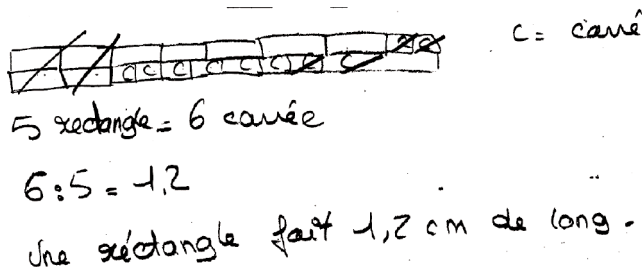 c = carré
C C
C C C C C C C C
5 rectangle = 6 carrée
6:5 = 1,2
une réctangle fait 1,2 cm de long.